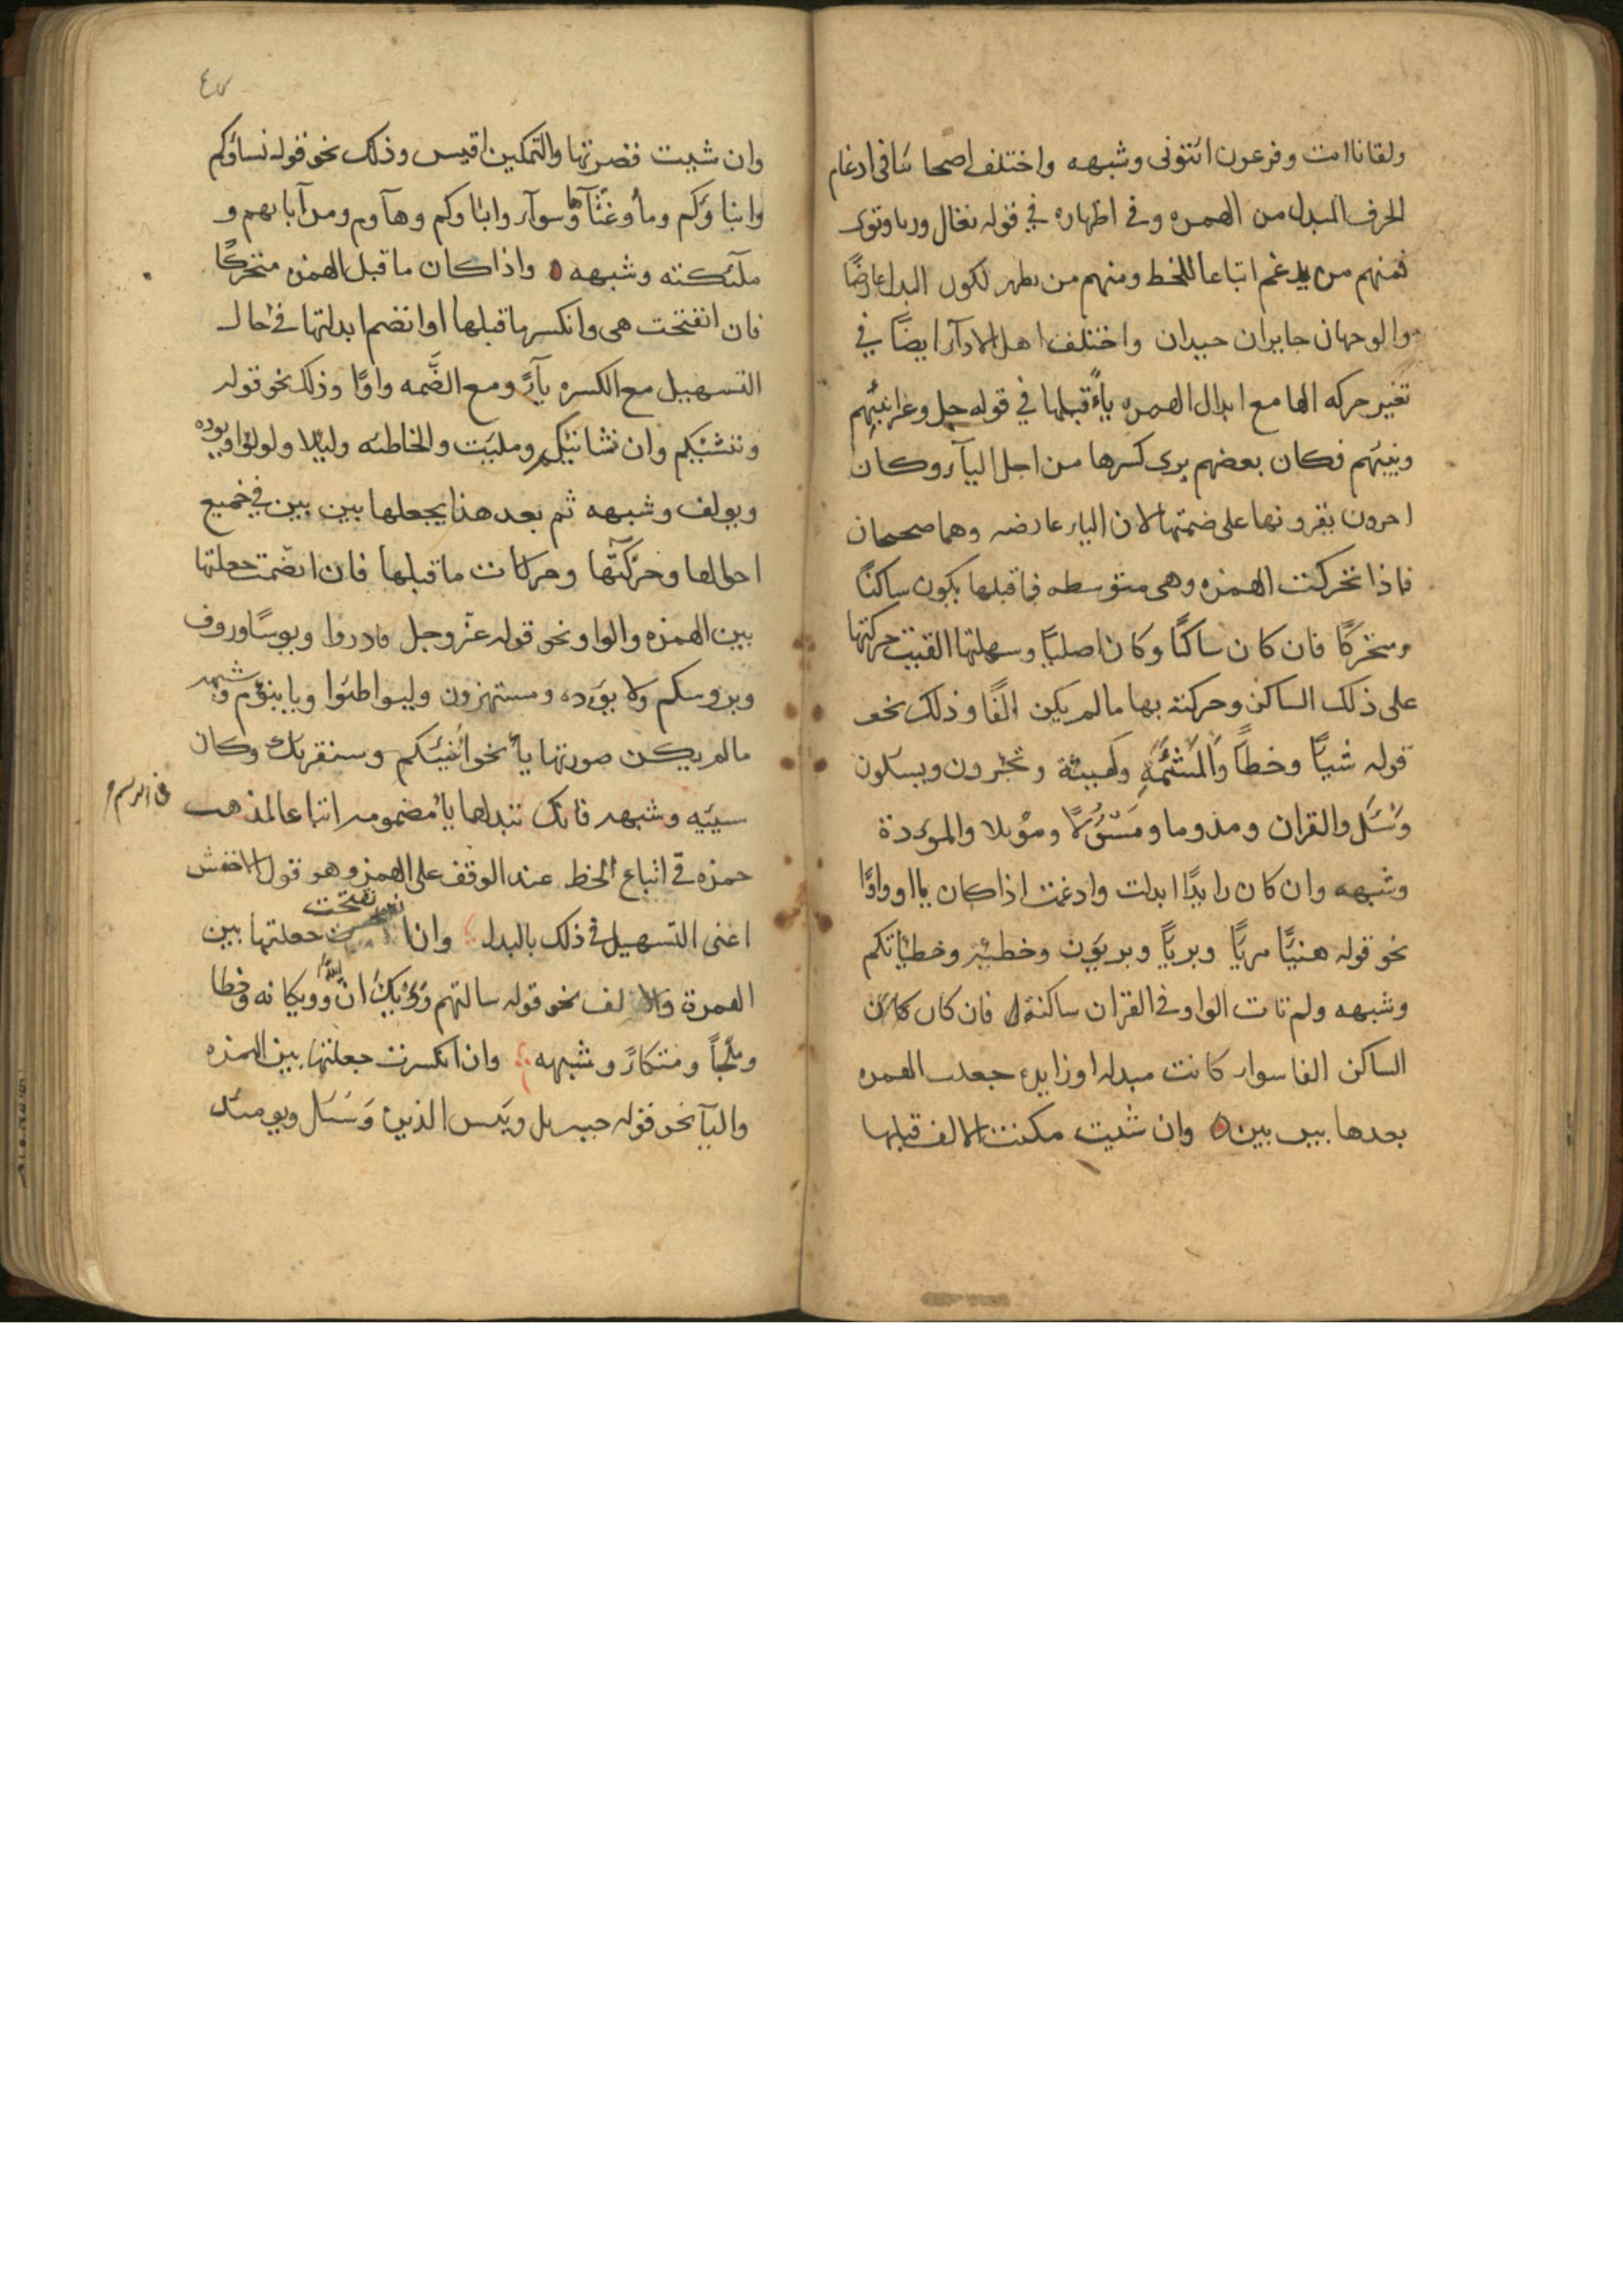 ولقاناايت وفرعون ائتونى وشبهه واختلف اصحابنا فى ادغام
الحرف المبدل من الهمزه وفى اظهاره في قوله تعالى وريا وتوى
فمنهم من يدغم اتباعا للخط ومنهم من يظهر لكون البدل عارضًا
والوجهان جايزان جيدان واختلف اهل الادآء ايضًا في
تغير حركه الها مع ابدال الهمزه ياءً قبلها في قوله جل وعز انبيهم
ونبيهم فكان بعضهم يرى كسرها من اجل اليآء وكان
اخرون يقرونها على ضمتها لان الياء عارضه وهما صحيحان
فاذا تحركت الهمزه وهى متوسطه فما قبلها يكون ساكنًا
ومتحركًا فان كان ساكنًا وكان اصليًا وسهلتها القيت حركتها
على ذلك الساكن وحركته بها مالم يكن الفًا وذلك نحو
قوله شيًا وخطًا والمشئمه وكهيئة وتجئرون ويسئلون
وسئل والقران ومذوما ومسئولا ومؤيلا والموءدة
وشبهه وان كان زايدًا ابدلت وادغمت اذا كان يا او واوًا
نحو قوله هنيًا مريًا وبريًا وبريون وخطيئه وخطيئاتكم
وشبهه ولم تات الواو فى القران ساكنة فان كان
الساكن الفا سوا كانت مبدله او زايده جعلت الهمزه
بعدها بين بين وان شيت مكنت الالف قبلها
٤٧
وان شيت قصرتها والتمكين اقيس وذلك نحو قوله نساؤكم
وابناؤكم ومآء وغثآء وسوآء وابناوكم وهآوم ومن آبايهم و
ملئكته وشبهه واذا كان ما قبل الهمزه متحركًا
فان انفتحت هى وانكسر ما قبلها او انضم ابدلتها فى حال
التسهيل مع الكسره يآءً ومع الضَّمه واوًا وذلك نحو قوله
وننشئكم وان شانئك وملئت والخاطئه وليلا ولولوا ويوده
ويولف وشبهه ثم بعد هذا يجعلها بين بين في جميع
احوالها وحركتها وحركات ما قبلها فان انضمت جعلتها
بين الهمزه والواو نحو قوله عز وجل فادروا ويوسًا وروف
وبروسكم ولا يؤده ومستهزون وليواطئوا ويابنؤم وشبهه
مالم يكن صورتها ياءً نحو انبئكم وسنقرئك وكان
سيئه وشبهه فانك تبدلها ياء مضمومه اتباعا لمذهب
فى الرسم
حمزه فى اتباع الخط عند الوقف على الهمز وهو قول الاخفش
اعنى التسهيل فى ذلك بالبدل وان انفتحت جعلتها بين
الهمزة والالف نحو قوله سالتهم ويكان الله وويكانه وخطا
وملجًا ومتكاءً وشبهه وان انكسرت جعلتها بين الهمزه
واليآ نحو قوله جبريل ويئس الذين وسئل ويومئذ